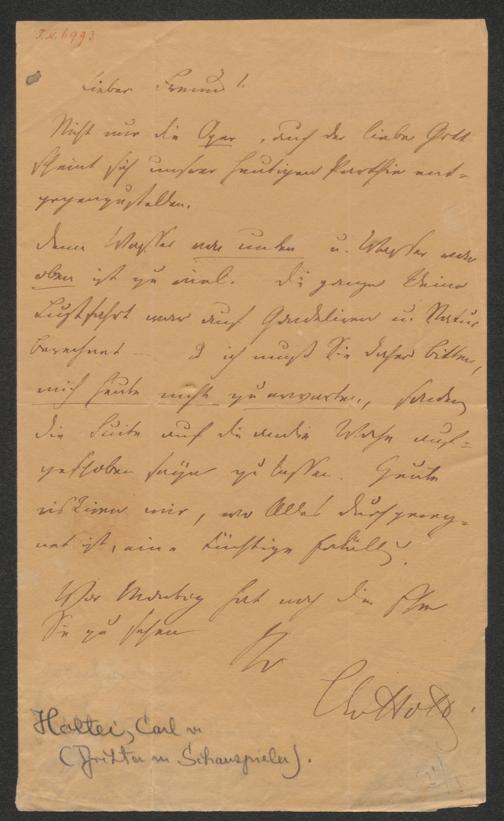 I.N. 6993
Lieber Freund!
Nicht nur die Oper, auch der liebe Gott
scheint sich unserer heutigen Parthie ent-
gegenzustellen.
Denn Wasser von unten u. Wasser von
oben ist zu viel. Die ganze kleine
Lustfahrt war auf u. Natur
berechnet ich muß Sie daher bitten,
mich heute nicht zu erwarten, sondern
die Suite auf die andre Woche auf-
geschoben seyn zu lassen. Heute
riskiren wir, wo Alles durchgereg-
net ist, eine tüchtige Erkältg.
Vor Montag hat noch die Ehre
Sie zu sehen
Ihr
CvHoltei.
Holtei, Carl v.
(Dichter u Schauspieler).